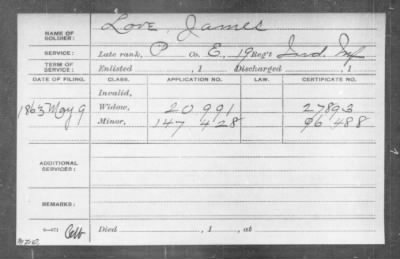 NAME OF SOLDIER: Love James
SERVICE: Late rank, P Co. E, 19 Reg't Ind. Inf
TERM OF SERVICE: Enlisted , 1 Discharged , 1
DATE OF FILING. CLASS. APPLICATION NO. LAW. CERTIFICATE NO.
Invalid,
1863 May 9 Widow, 20 991 27893
Minor, 147 428 96 488
ADDITIONAL SERVICES:
REMARKS:
Died , 1 , at